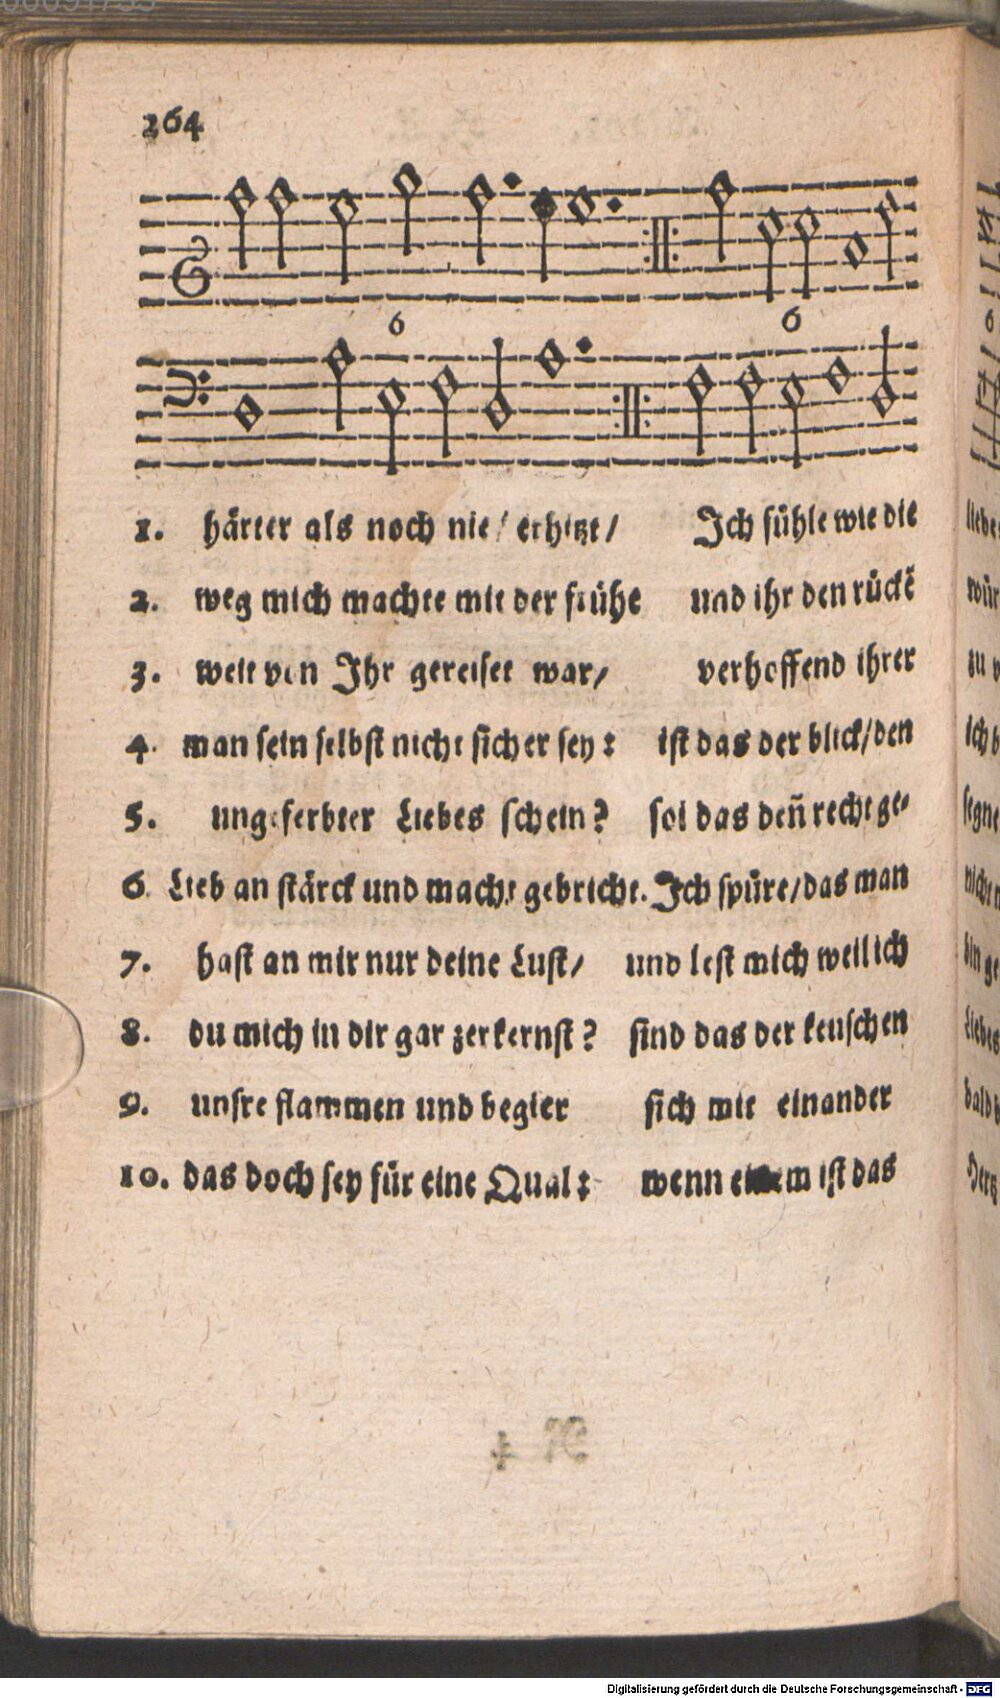 264
6 6
1. härter als noch nie / erhitzt / Ich fühle wie die
2. weg mich machte mit der frühe und ihr den rückẽ
3. weit von Ihr gereiset war / verhoffend ihrer
4. man sein selbst nicht sicher sey : ist das der blick / den
5. ungeferbter Liebes schein ? sol das deñ recht ge-
6. Lieb an stärck und macht gebricht. Ich spüre / das man
7. hast an mir nur deine Lust / und lest mich weil ich
8. du mich in dir gar zerkernst ? sind das der keuschen
9. unsre flammen und begier sich mit einander
10. das doch sey für eine Qual : wenn einem ist das
Digitalisierung gefördert durch die Deutsche Forschungsgemeinschaft - DFG